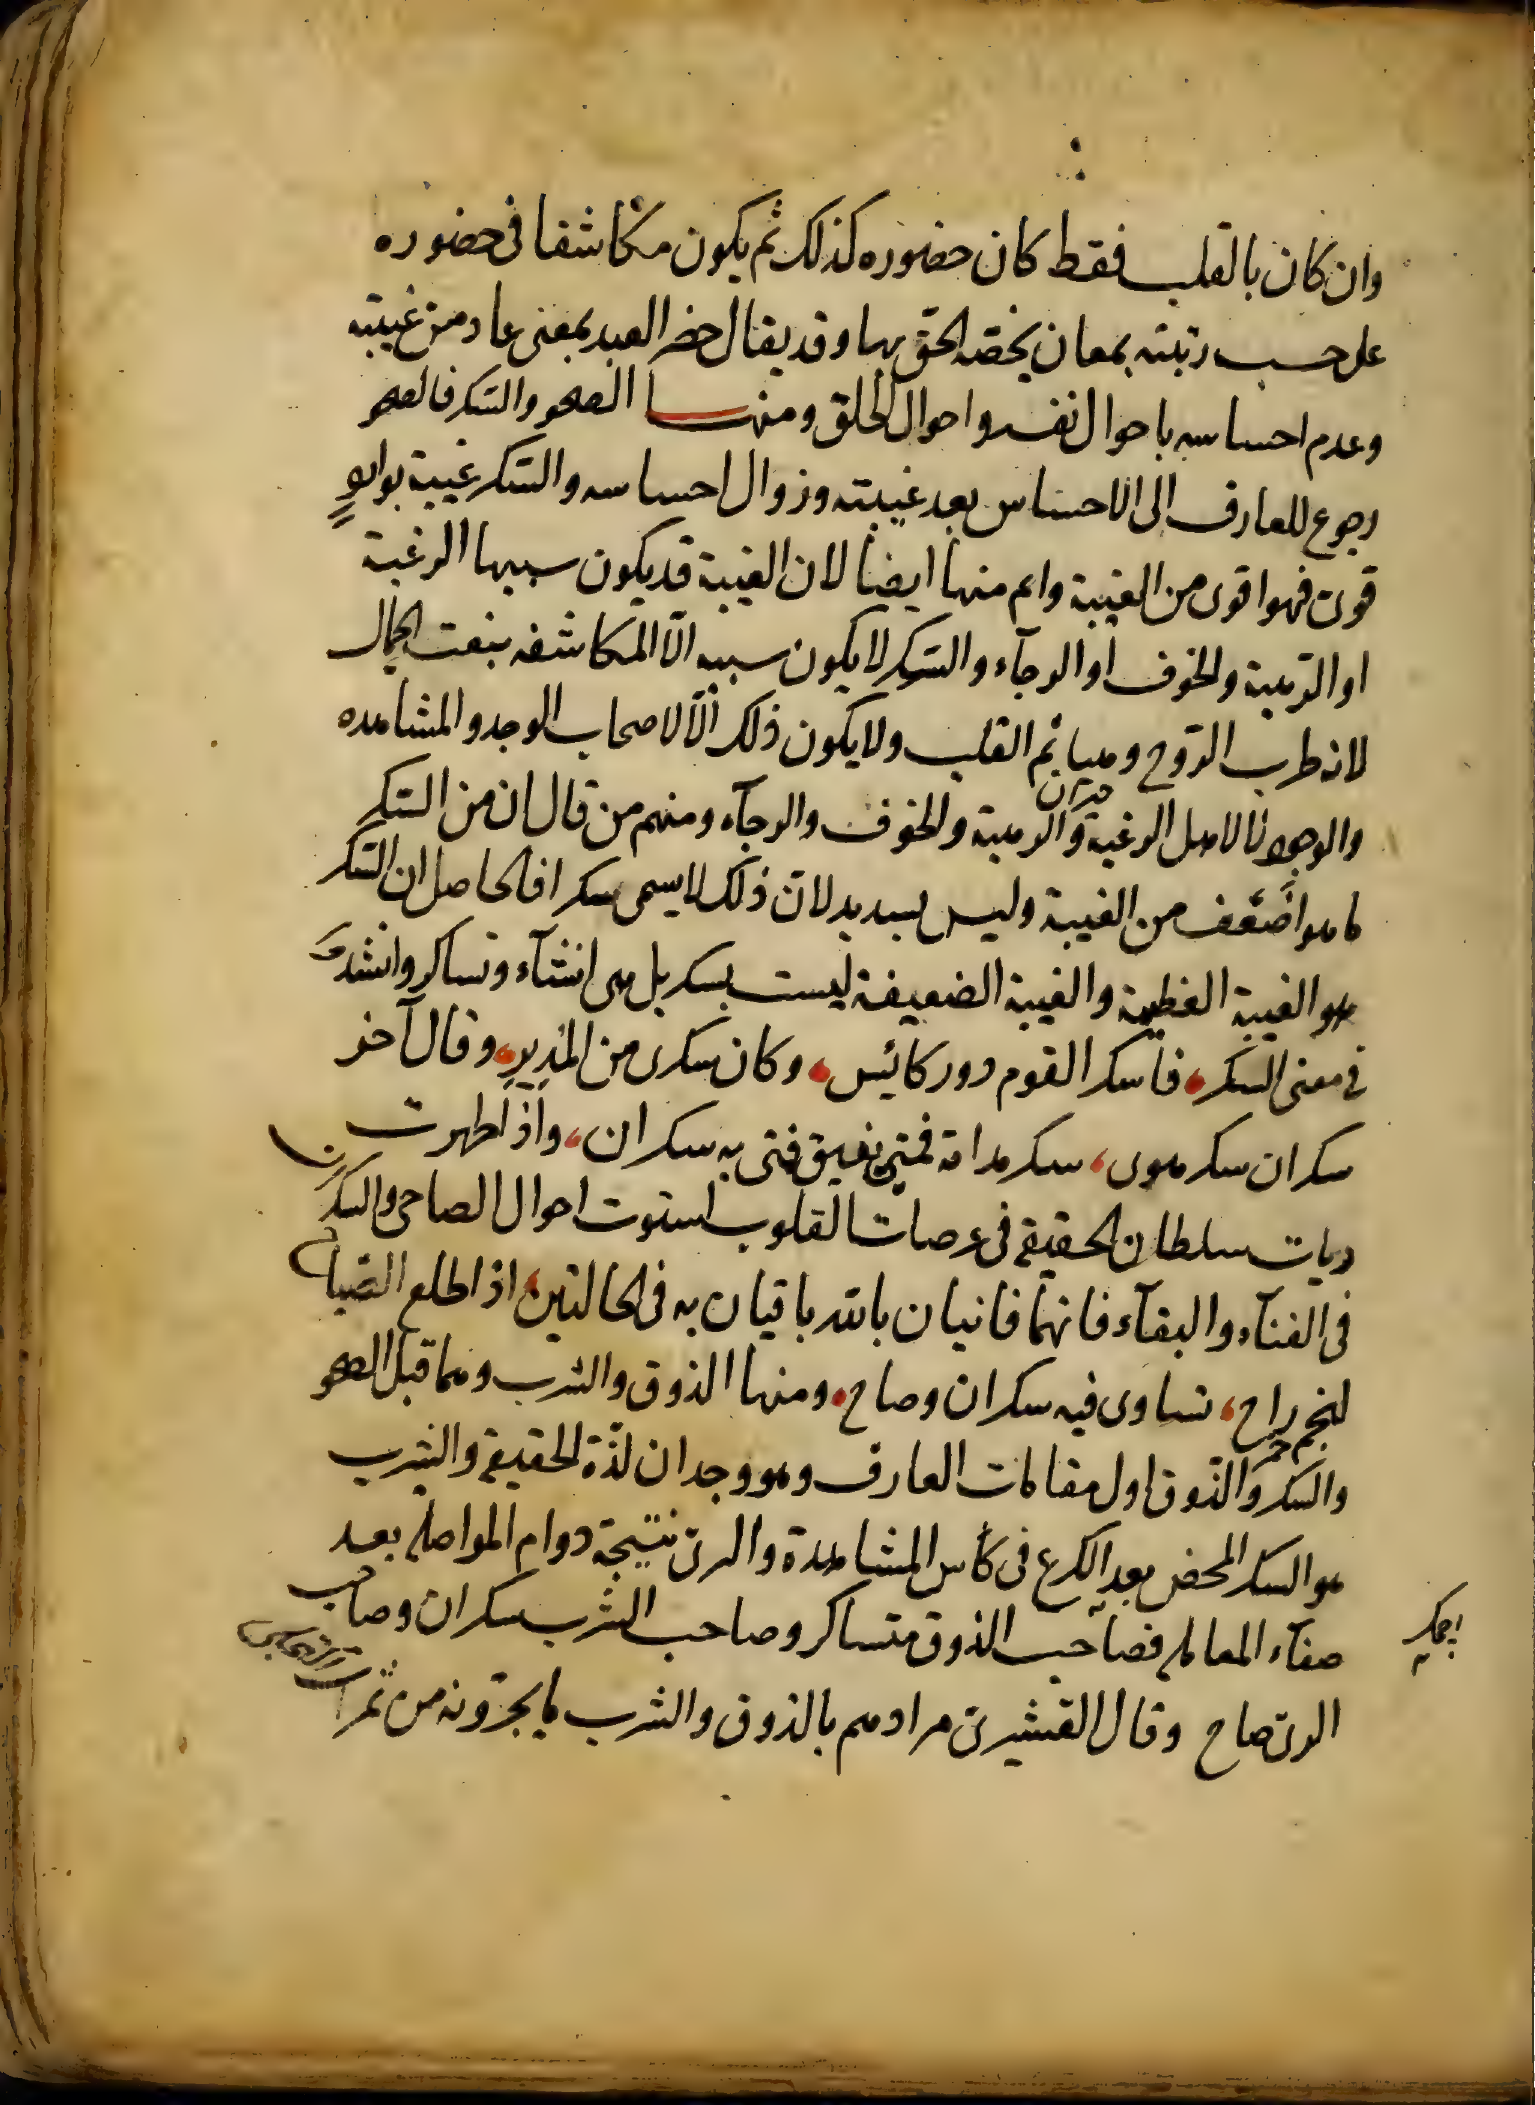 وان كان بالقلب فقط كان حضوره كذلك ثم يكون مكاشفا فى حضوره
على حسب رتبته بمعان يخصّه الحق بها وقد يقال حضر العبد بمعنى عاد من غيبته
وعدم احساسه باحوال نفسه واحوال الخلق ومنها الصحو والسّكر فالصحو
رجوع للعارف الى الاحساس بعد غيبته وزوال احساسه والسّكر غيبة بوارد
قوى فهو اقوى من الغيبة واتم منها ايضا لان الغيبة قد يكون سببها الرغبة
او الرهبة والخوف او الرجآء والسّكر لا يكون سببه الّا المكاشفه بنعت الجمال
لانه طرب الرّوح وهيائم القلب ولا يكون ذلك الّا لاصحاب الوجد والمشاهده
والوجود لا لاهل الرغبة والرهبة والخوف والرجآء ومنهم من قال ان من السّكر
ما هو اضعف من الغيبة وليس بسديد لان ذلك لا يسمى سكرا فالحاصل ان السّكر
هو الغيبة العظيمة والغيبة الضعيفة ليست بسكر بل هى انتشآء وتساكر وانشد
فى معنى السكر، فاسكر القوم دور كائس، وكان سكرى من المدير، وقال آخر
سكران سكر هوى، سكر مدامة فمتى يفيق فتى به سكران، واذا ظهرت
رايات سلطان الحقيقة فى عرصات القلوب استوت احوال الصاحى والسكران
فى الفنآء والبقآء فانهما فانيان بالله باقيان به فى الحالتين، اذا طلع الصباح
لنجم راح، تساوى فيه سكران وصاح، ومنها الذوق والشرب وهما قبل الصحو
والسكر والذّوق اول مقامات العارف وهو وجدان لذّة الحقيقة والشرب
هو السكر المحض بعد الكرع فى كأس المشاهدة والرىّ نتيجة دوام المواصلة بعد
صفآء المعامله فصاحب الذوق متساكر وصاحب الشرب سكران وصاحب
الرىّ صاح وقال القشيرىّ مرادهم بالذوق والشرب ما يجدونه من ثمرات التجلى